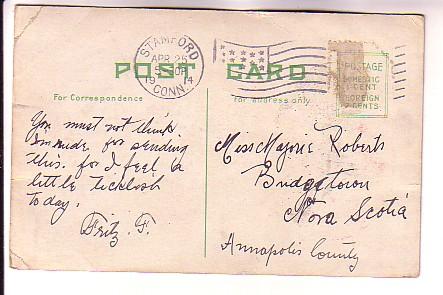 STAMFORD
APR 25
1914
CONN.
POST CARD
For Correspondence
For address only
POSTAGE
DOMESTIC
1 CENT
FOREIGN
2 CENTS
You must not think
I'm rude for sending
this. for I feel a
little ticklish
today.
Fritz. F.
Miss Majorie Roberts
Bridgetown
Nova Scotia
Annapolis County